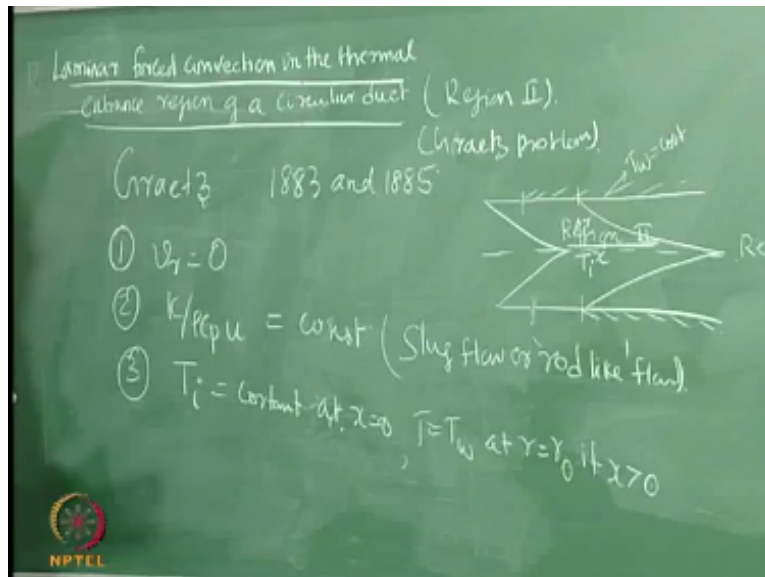 Laminar forced convection in the thermal
entrance region of a circular duct (Region II).
(Graetz problem).
Graetz 1883 and 1885
Tw = const
① vr = 0
Region II
Ti x
Re
② K/ρcp u = const (Slug flow or 'rod like' flow).
③ Ti = constant at x=0, T=Tw at r=r0 if x>0
NPTEL